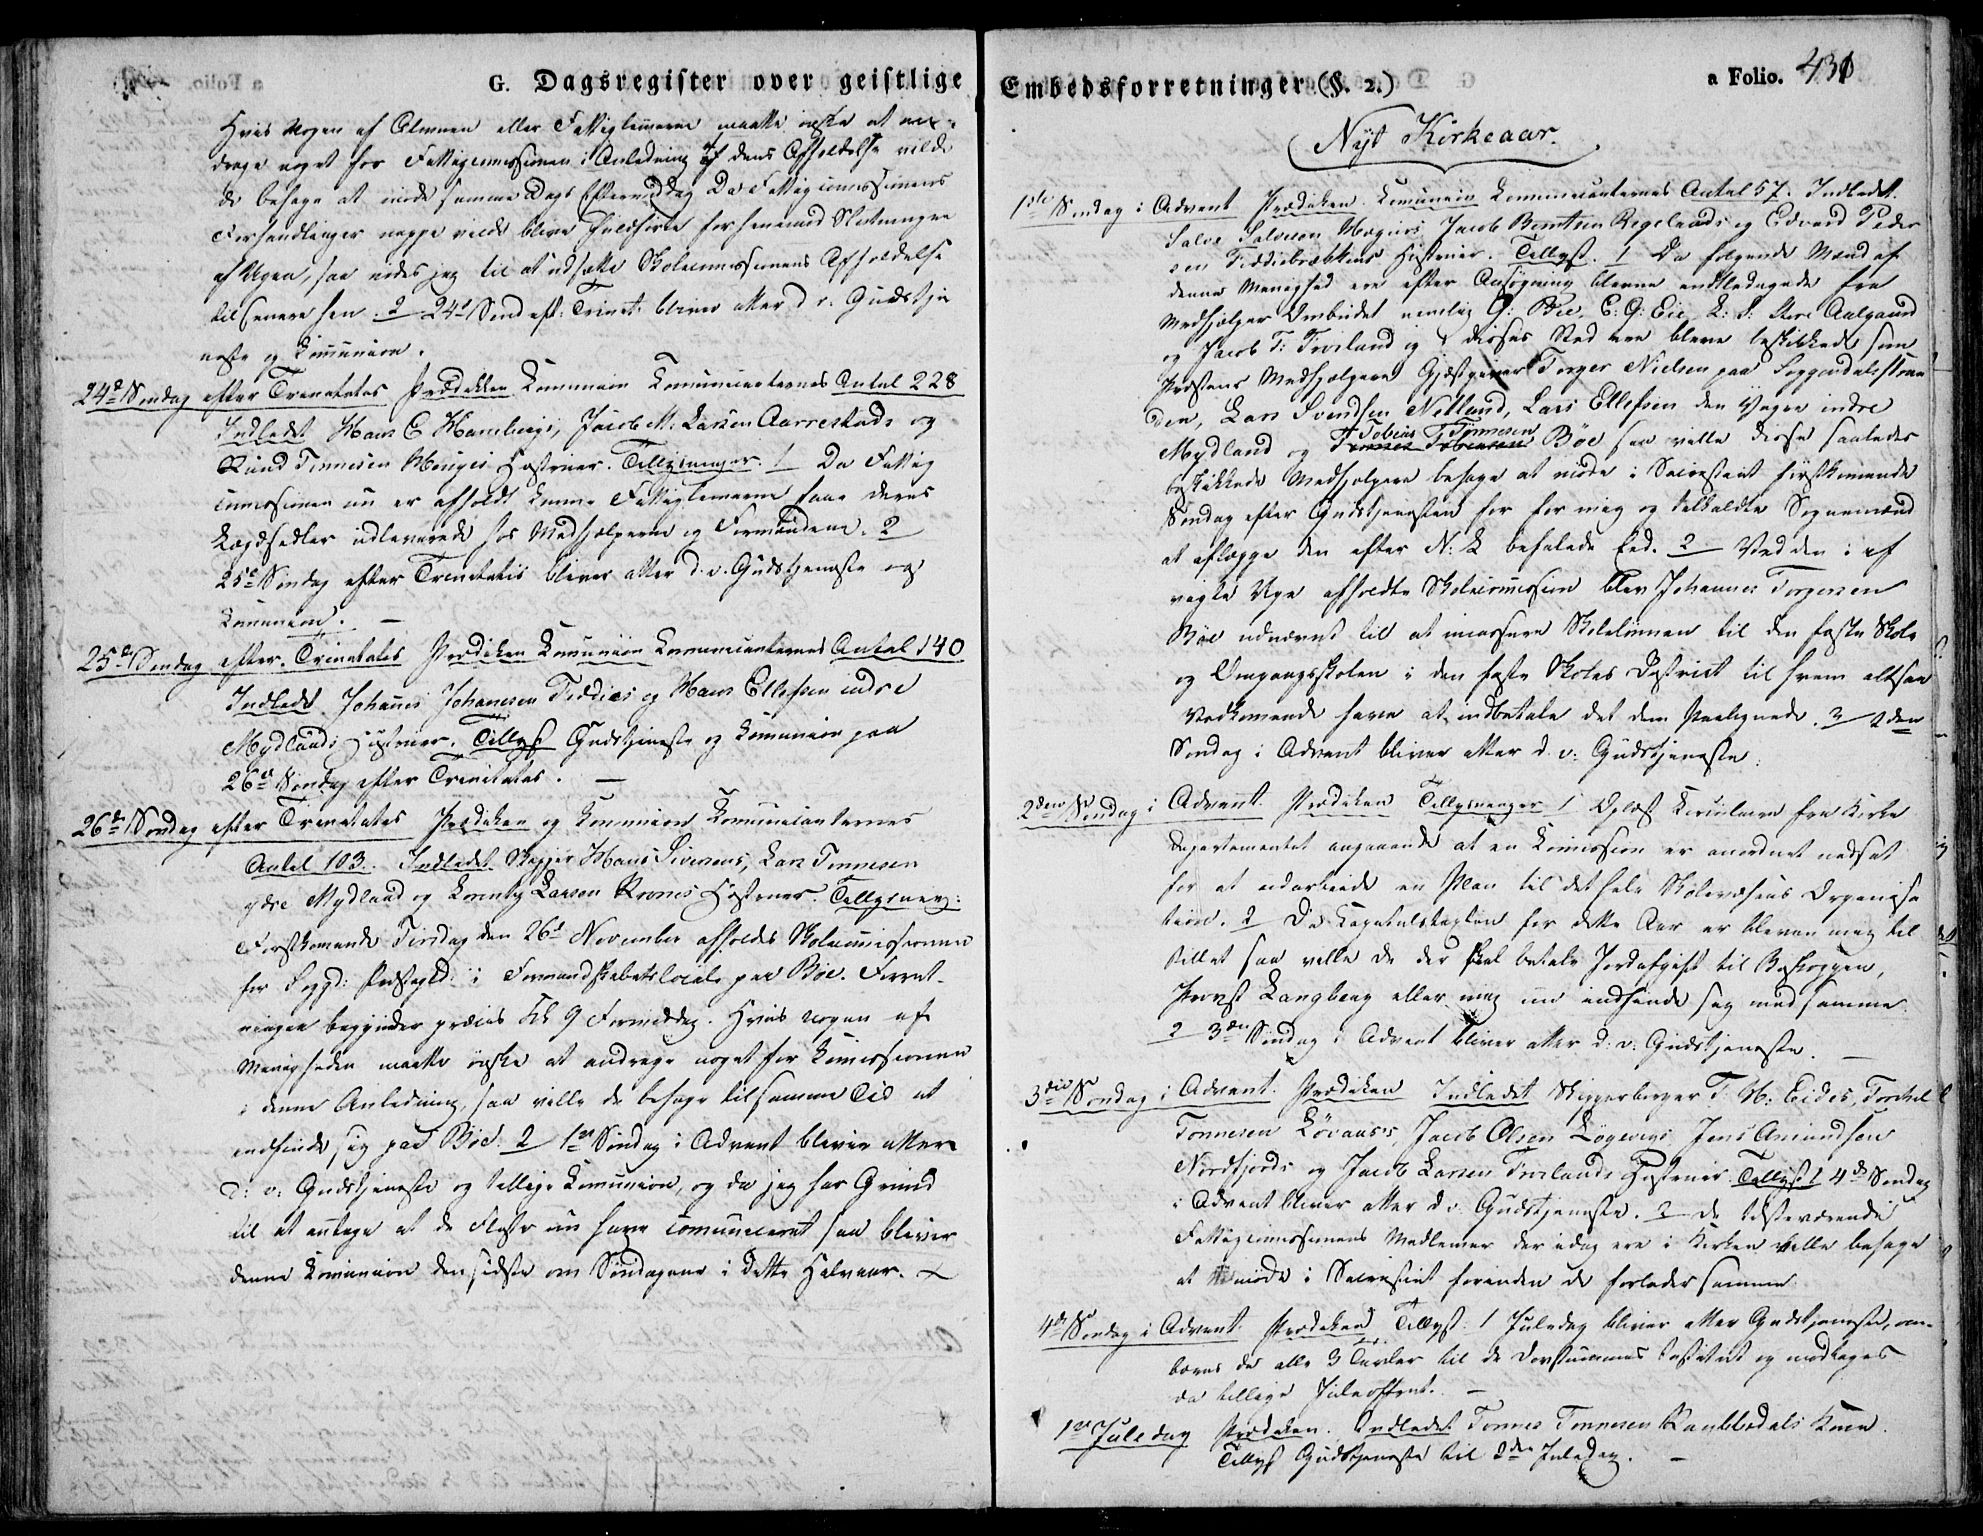 G. Dagsregister over geistlige
Hvis Nogen af Almuen eller Fattiglemmerne maatte ønske at an-
drage noget for Fattigcommissionen i Anledning af dens Afholdelse vilde
de behage at møde samme Dags Eftermiddag Da Fattigcommissionens
Forhandlinger neppe vilde blive fuldførte før henimod Slutningen
af Ugen, saa nødes jeg til at udsætte Skolecommissionens Afholdelse
til senere hen. 2 24de Sønd eft: Trinit: bliver atter d. v. Gudstje
neste og Communion.
24de Søndag efter Trinitatis Prædiken Communion Communicanternes Antal 228
Indledt Hans C Hambergs, Jacob M. Larsen Aarrestads og
Tønnesen Hauges Hustruer. Tillysninger. 1 Da Fattig
commissionen nu er afholdt kunne Fattiglemmerne faae deres
Lægdsedler udleverede hos Medhjælperne og Formændene. 2
25de Søndag efter Trinitatis bliver atter d. v. Gudstjeneste og
Communion. —
25de Søndag efter Trinitatis Prædiken Communion Communicanternes Antal 140
Indledt Johannes Johannesen Fiddies og Hans Ellefsen indre
Mydlands Hustruer. Tillyst Gudstjeneste og Communion paa
26de Søndag efter Trinitatis. —
26de Søndag efter Trinitatis Prædiken og Communion Communicanternes
Antal 103. Indledt Skipper Hans Sivertsens, Lars Tønnesen
ydre Mydland og Larsen Hustruer. Tillysning:
Førstkommende Tirsdag den 26de November afholdes Skolecommissionen
for Sogd: Præstegld: i Formandskabetslocale paa Bøe. Forret-
ningen begynder præcis Kl 9 Formiddag. Hvis nogen af
Menigheden maatte ønske at andrage noget for Commissionen
i denne Anledning, saa ville de behage til samme Tid at
indfinde sig paa Bøe. 2 1ste Søndag i Advent bliver atter
d: v: Gudstjeneste og tillige Communion, og da jeg har Grund
til at antage at de Fleste nu have communiceret saa bliver
denne Communion den sidste om Søndagene i dette Halvaar.
Embedsforretninger (§. 2.)
a Folio. 431
Nyt Kirkeaar.
1ste Søndag i Advent Prædiken Communion Communicanternes Antal 57. Indledt
Salve Salvesen Jacob Berntsen Regelands og Edvard Peder
sen Hustruer. Tillyst. 1 Da følgende Mænd af
denne Menighed ere efter Ansøgning blevne entledigede fra
Medhjælper Ombudet nemlig G: Bøe, E: G: Eie, L: S: Aalgaard
og Jacob T: Frøiland og i disses Sted ere bleve beskikkede som
Præstens Medhjælpere Gjæstgiver Torger Nielsen paa Soggendalsstran
den, Lars Svendsen Netland, Lars Ellefsen den Yngre indre
Mydland og Tobias Tønnesen Bøe saa ville disse saaledes
beskikkede Medhjælpere behage at møde i Sacristiet førstkommende
Søndag efter Gudstjenesten for for mig og tilkaldte Sognemænd
at aflægge den efter N: L befalede Eed. 2 Ved den i af
vigte Uge afholdte Skolecommission blev Johannes Torgersen
Bøe udnævnt til at incassere Skoleløn­nen til den faste Skole
og Omgangsskolen i den faste Skoles District til hvem altsaa
Vedkommende have at indbetale det dem Paalignede. 3 2den
Søndag i Advent bliver atter d. v: Gudstjeneste.
2den Søndag i Advent. Prædiken Tillysninger 1 Oplæst fra Kirke
Departementet angaaende at en Commission er anordnet nedsat
for at udarbeide en Plan til det hele Skolevæsens Organisa
tion. 2 Da Capitelstaxten for dette Aar er bleven mig til
stillet saa ville de der skal betale Jordafgift til
Provst Langberg eller mig nu indfinde sig med samme.
2 3die Søndag i Advent bliver atter d: v: Gudstjeneste. —
3die Søndag i Advent. Prædiken Indledt Skipperborger T. M: Eides, Torkel
Tønnesen Løvaas's, Jacob Olsen Løgevigs, Jens Amundsen
Nordfjords og Jacob Larsen Frøilands Hustruer. Tillyst 1 4de Søndag
i Advent bliver atter d. v. Gudstjeneste. 2 De tilstedeværende
Fattigcommissionens Medlemmer der idag ere i Kirken ville behage
at møde i Sacristiet forinden de forlader samme.
4de Søndag i Advent Prædiken Tillyst: 1 Juledag bliver atter Gudstjeneste, om-
bæres da alle 3 Tavler til de Døvstummes Institut og modtages
da tillige Juleoffret. —
1ste Juledag Prædiken. Indledt Tønnes Tønnesen Kone.
Tillyst Gudstjeneste til 2den Juledag. —